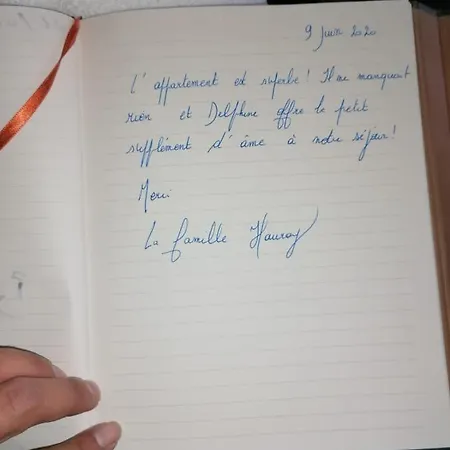 9 Juin 2020
L'appartement est superbe ! Il ne manquait
rien et Delphine offre le petit
supplément d'âme à notre séjour !
Merci
La famille Hauray